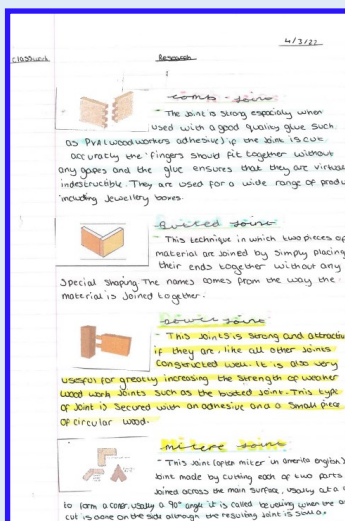 4/3/22
classwork
Research
comb joint
- The joint is strong especially when
used with a good quality glue such
as PVA (wood workers adhesive) if the joint is cut
accurately the fingers should fit together without
any gapes and the glue ensures that they are
indestructible. They are used for a wide range of
including Jewellery boxes.
Butted joint
- This technique in which two pieces of
material are joined by simply placing
their ends together without any
Special shaping The names comes from the way the
material is Joined together.
dowel joint
- This joints is strong and
if they are, like all other joints
constructed well. It is also very
usefull for greatly increasing the strength of weaker
wood work joints such as the butted joint. This type
of Joint is secured with an adhesive and a small piece
of circular wood.
mitere joint
- This joint (often miter in america english)
Joint made by cutting each of two parts
Joined across the main surface, usually at a
to form a coner, usually a 90° angle it is called beveling when the
cut is done on the side although the resulting joint is